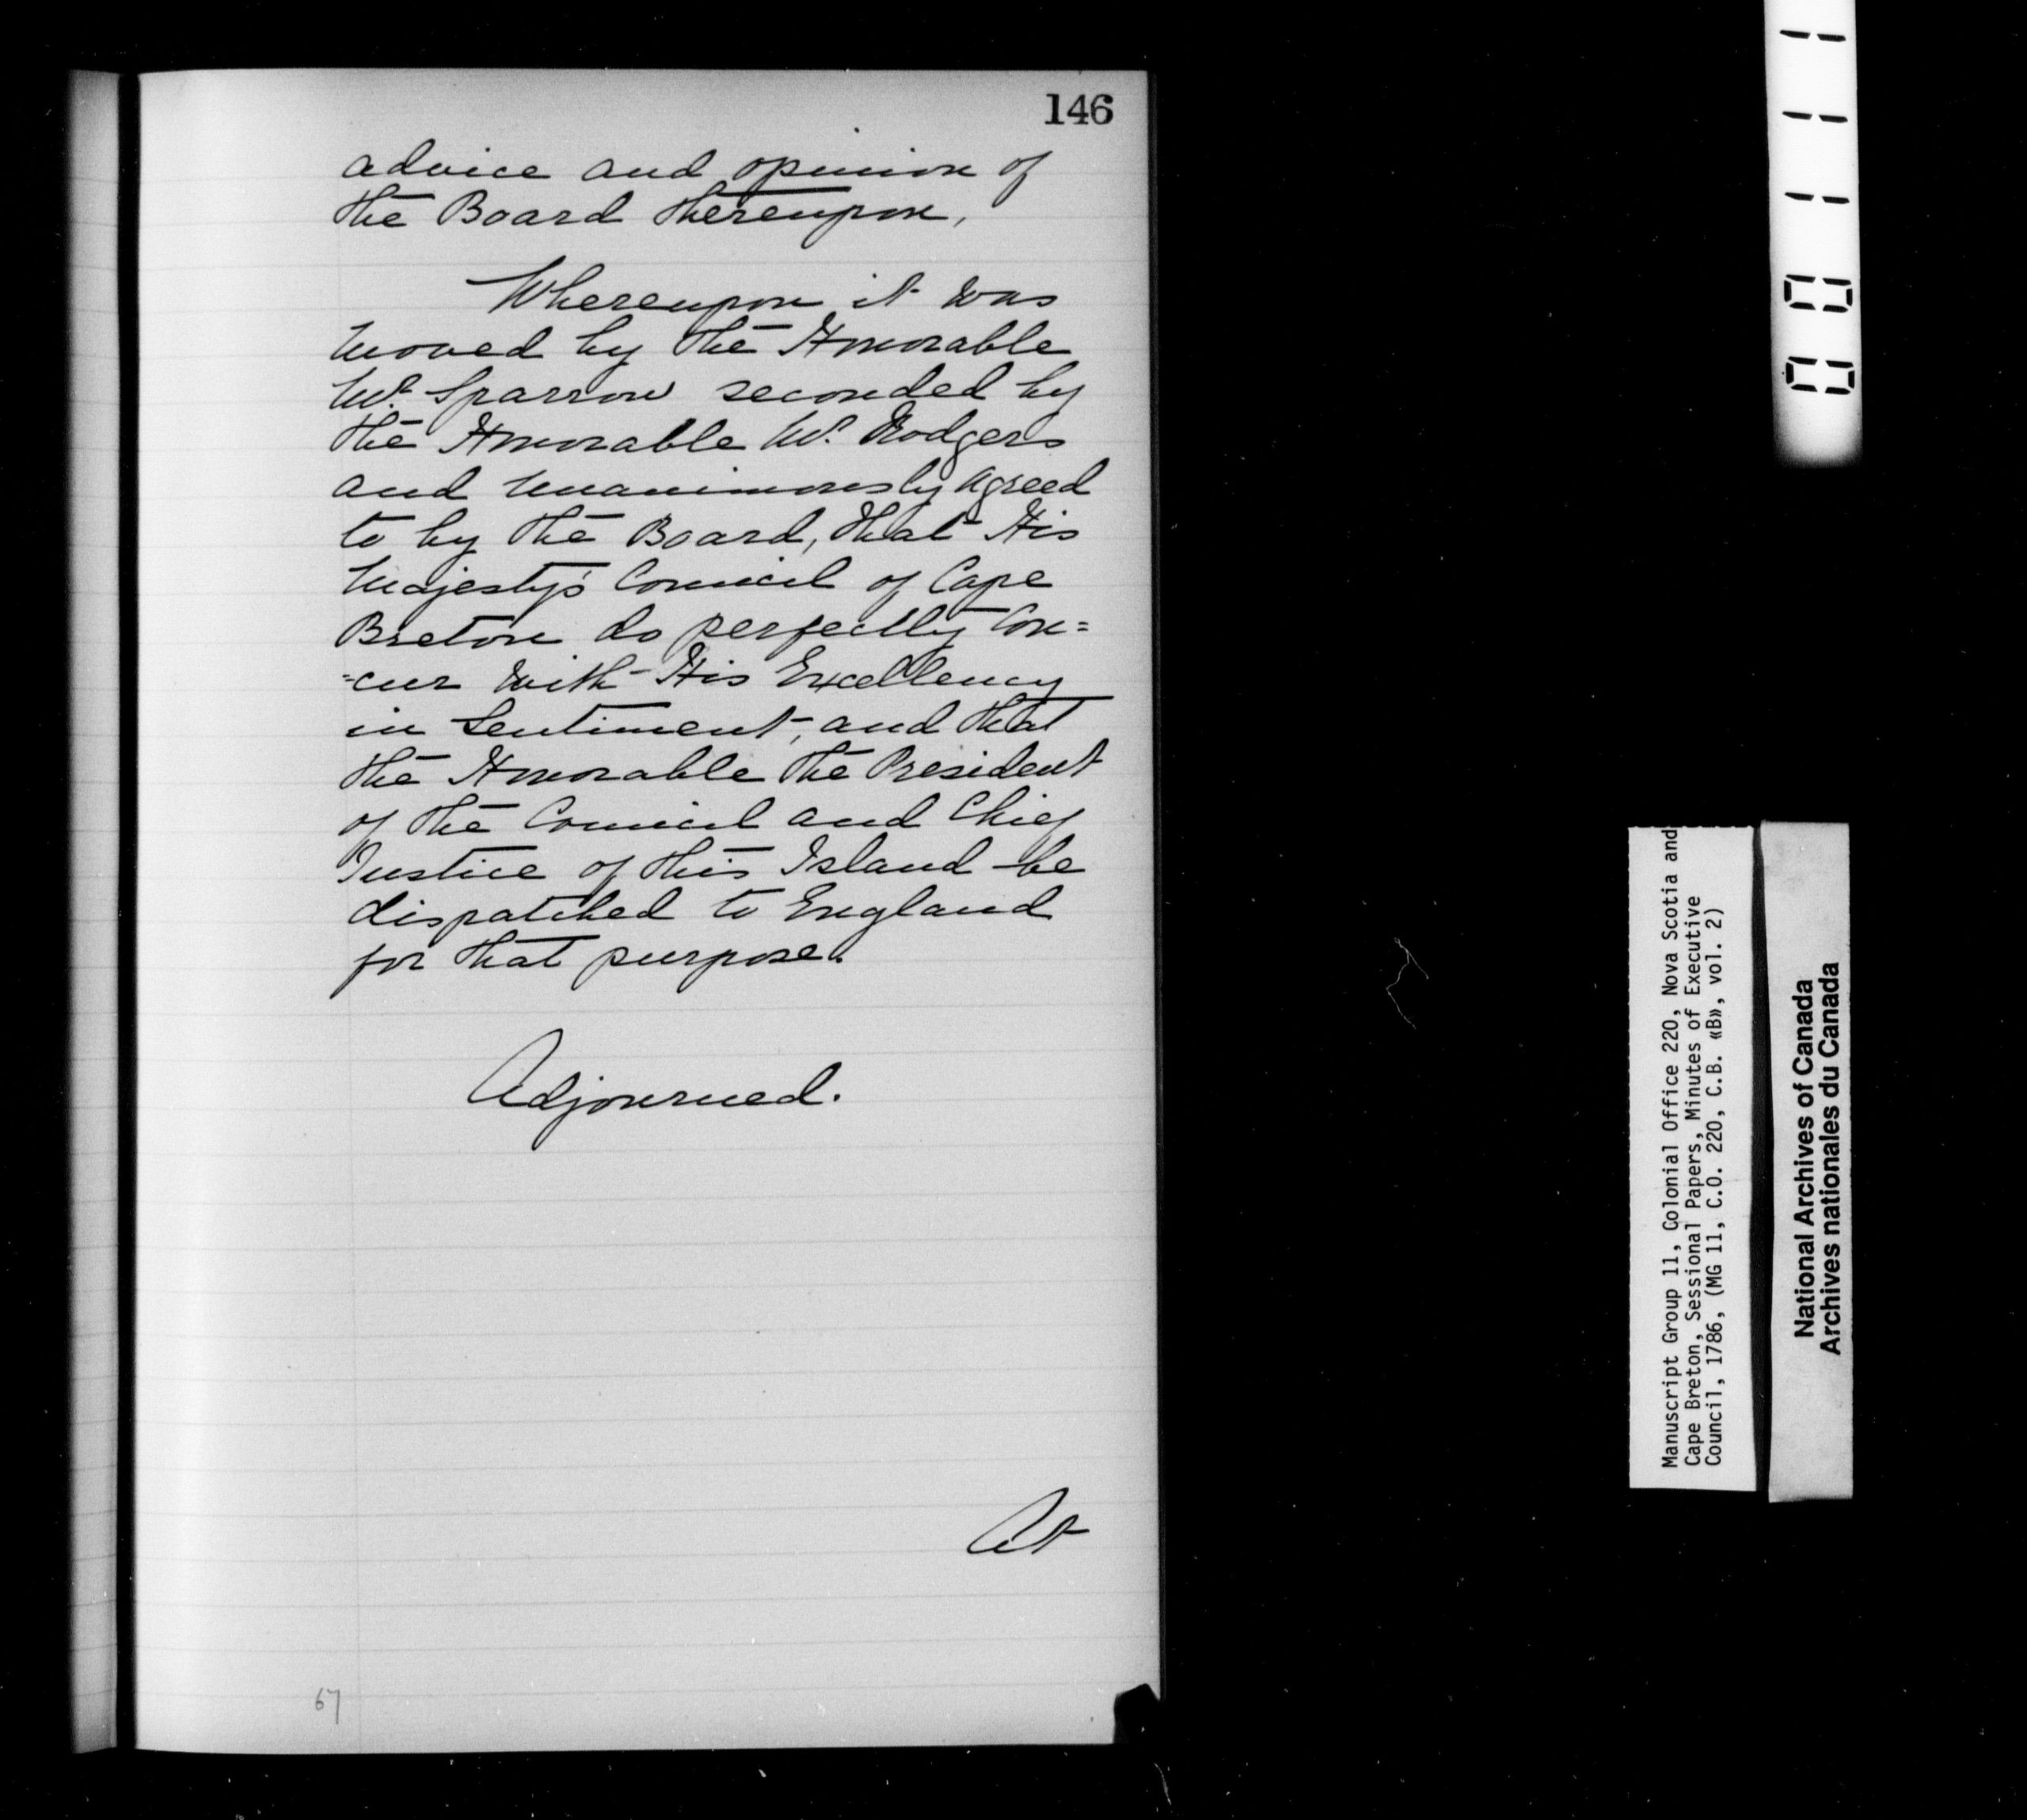 146
advice and opinion of
the Board thereupon,
Whereupon it was
moved by the Honorable
Mr. Sparrow seconded by
the Honorable Mr. Rodgers
and unanimously agreed
to by the Board, that His
Majesty's Council of Cape
Breton do perfectly Con=
=cur with His Excellency
in Sentiment, and that
the Honorable the President
of the Council and Chief
Justice of this Island be
dispatched to England
for that purpose.
Adjourned.
At
67
Manuscript Group 11, Colonial Office 220, Nova Scotia and
Cape Breton, Sessional Papers, Minutes of Executive
Council, 1786, (MG 11, C.O. 220, C.B. «B», vol. 2)
National Archives of Canada
Archives nationales du Canada